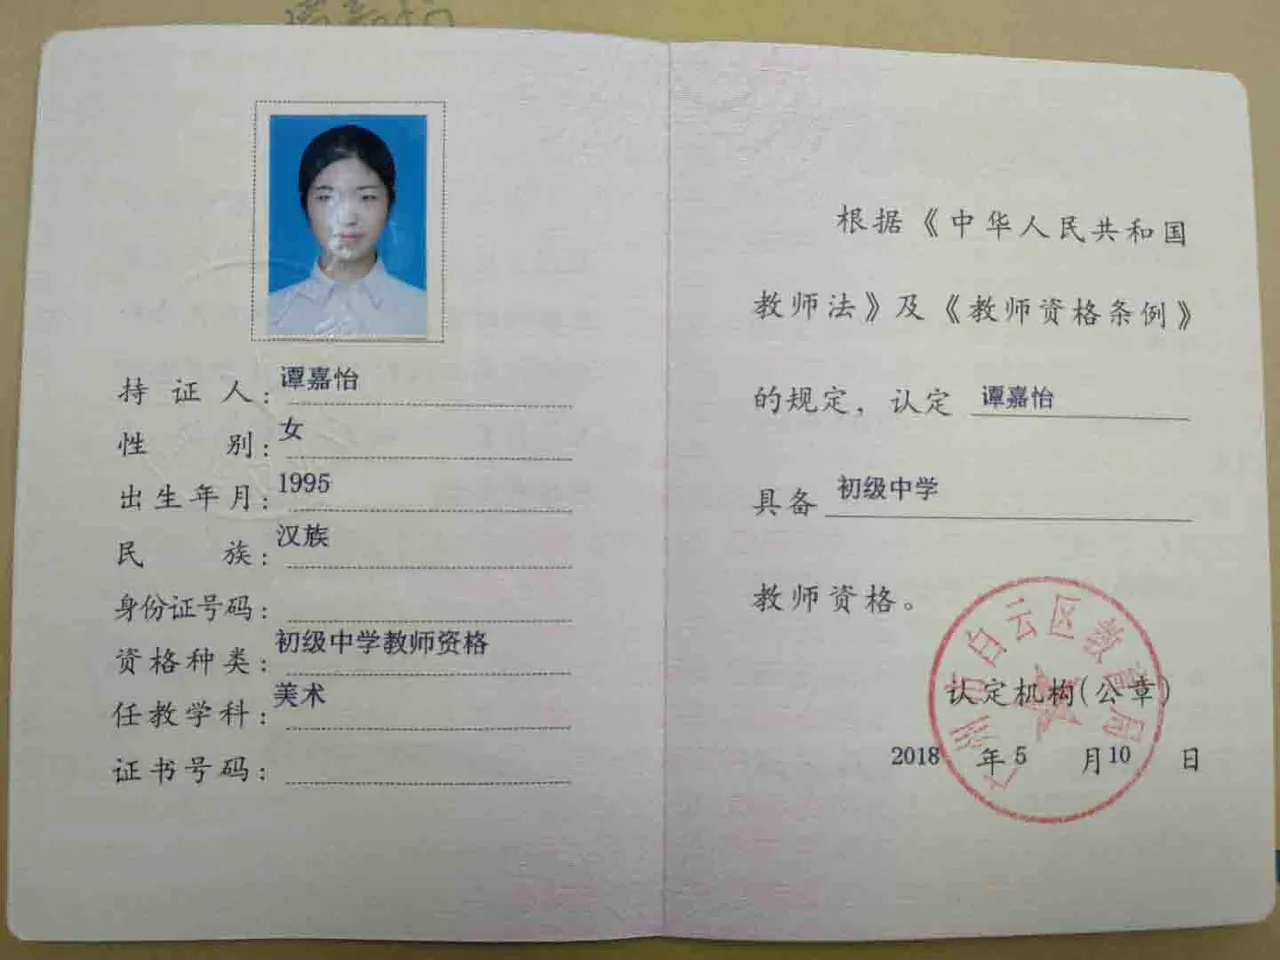 谭嘉怡
持证人：谭嘉怡
性别：女
出生年月：1995
民族：汉族
身份证号码：
资格种类：初级中学教师资格
任教学科：美术
证书号码：
根据《中华人民共和国
教师法》及《教师资格条例》
的规定，认定 谭嘉怡
具备 初级中学
教师资格。
广州市白云区教育局
认定机构(公章)
2018 年 5 月 10 日